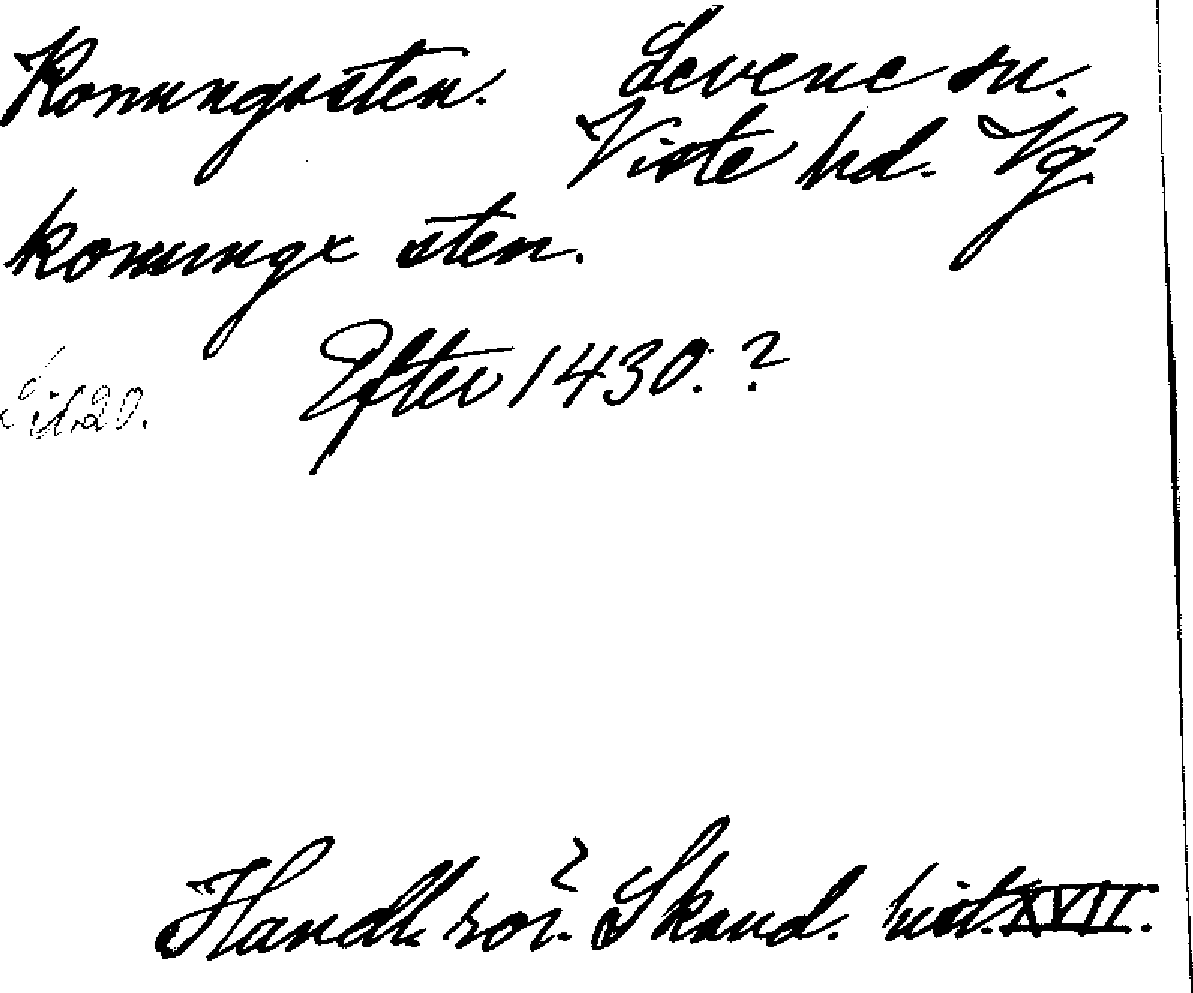 Konungssten. Levene sn.
Viste hd. Vg.
konungx sten.
Efter 1430. ?
sid. 20.
Handl. rör. Skand. hist. XVII.